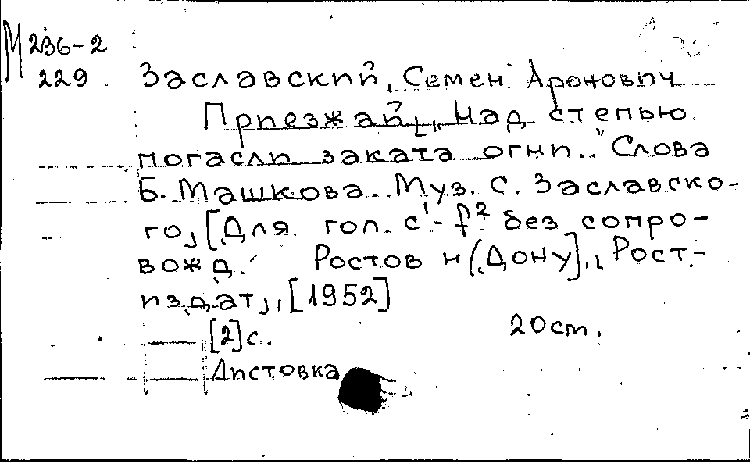 М 236-2
229
Заславский, Семен Аронович
Приезжай! „Над степью
погасли заката огни.." Слова
Б. Машкова. Муз. С. Заславско-
го, [Для гол. c¹-f² без сопро-
вожд. Ростов н(Дону], Рост-
издат, [1952]
[2]с. 20 cm.
Листовка